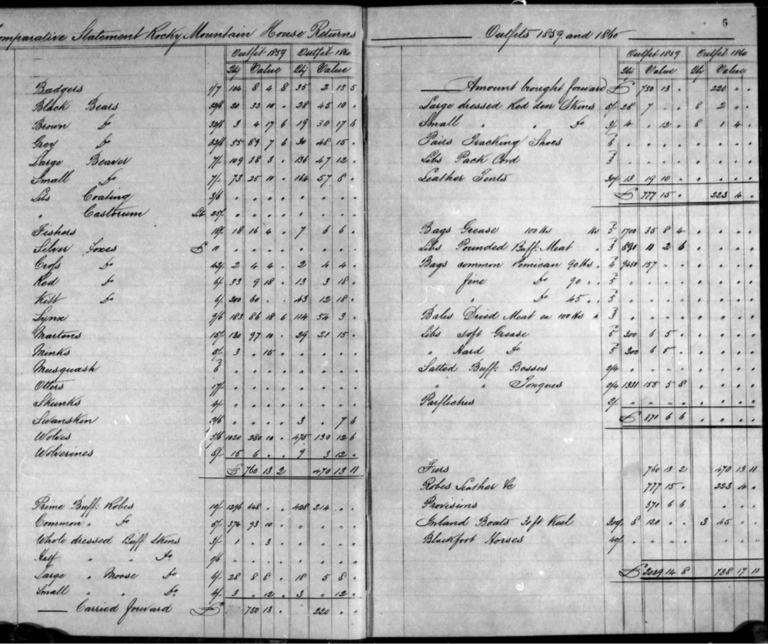 Comparative Statement Rocky Mountain House Returns
Outfit 1859 Outfit 1860
Qty Value Qty Value
Badgers 1/7 104 8 4 8 35 2 15 5
Black Bears 22/6 20 22 10 . 28 45 10 .
Brown Do 22/6 3 4 17 6 19 30 17 6
Grey Do 35 89 7 6 30 48 15 .
Large Beaver 7/ 109 38 3 . 136 47 12 .
Small Do 7/ 73 25 11 . 164 57 8 .
Lbs Coating
" Castorum Lb
Fishers 18 16 4 . 7 6 6 .
Silver Foxes £
Cross Do 2 4 4 . 2 4 4 .
Red Do 6/ 33 9 18 . 13 3 18 .
Kitt Do 6/ 200 60 . . 43 12 18 .
Lynx 9/6 183 86 18 6 114 54 3 .
Martens 15/ 130 97 10 . 29 21 15 .
Minks 5/ 3 . 15 .
Musquash
Otters
Skunks
Swanskin 2/6 3 . 7 6
Wolves 5/6 1020 280 10 . 475 130 12 6
Wolverines 15 6 . . 9 3 12 .
£ 760 13 2 470 13 11
Prime Buff: Robes 10/ 1296 648 . . 428 214 . .
Common " Do 5/ 374 93 10 .
Whole dressed Buff Skins 3/ 1 . 3 .
Half " " Do
Large " Moose Do 6/ 28 8 8 . 18 5 8 .
Small " " Do 4/ 3 . 12 . 3 . 12 .
Carried forward £ 750 13 . 220 . .
Outfits 1859 and 1860
5
Outfit 1859 Outfit 1860
Qty Value Qty Value
Amount brought forward £ 750 13 . 220 . .
Large dressed Red deer Skins 5/ 28 7 . . 8 2 . .
Small " " Do 3/ 4 . 12 . 8 1 4 .
Pairs Tracking Shoes
Lbs Pack Cord
Leather Tents 30/ 13 19 10 .
£ 777 15 . 223 4 .
Bags Grease 100 lbs 1700 35 8 4
Lbs Pounded Buff: Meat 890 11 2 6
Bags common Pemican 90 lbs
fine Do 90
" Do 45
Bales Dried Meat ea 100 lbs
Lbs Soft Grease 300 6 5 .
" Hard Do 300 6 5 .
Salted Buff: Bosses 2/4
" " Tongues 2/4 1331 155 5 8
Parfleches
£ 371 6 6
Furs 760 13 2 470 13 11
Robes Leather &c 777 15 . 223 4 .
Provisions 371 6 6
Inland Boats 30 ft Keel 6 120 . . 3 45 . .
Blackfoot Horses
£ 2029 14 8 738 17 11